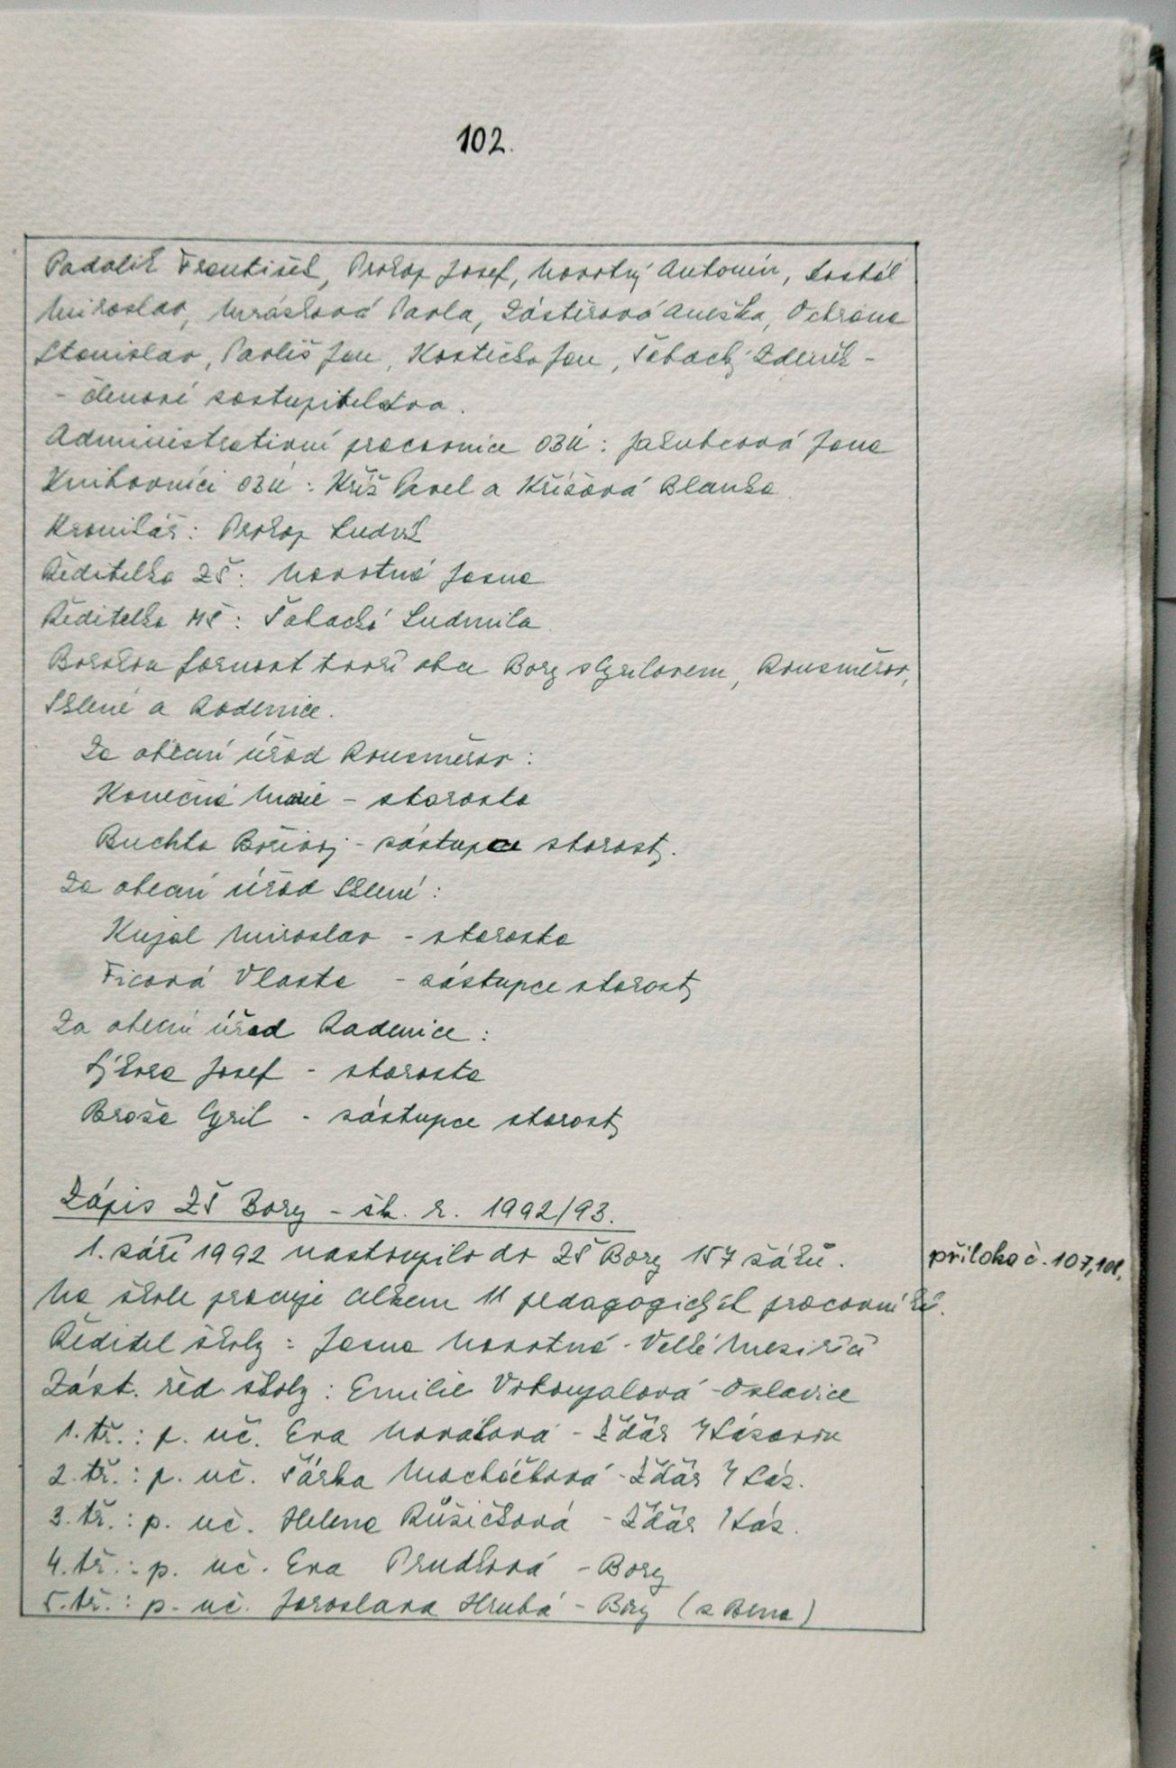 102.
Padalík František, Prokop Josef, Novotný Antonín, Dostál
Miroslav, Mrášková Pavla, Zástěrová Anežka, Ochrana
Stanislav, Pavliš Jan, Kostečka Jan, Šabacký Zdeněk -
- členové zastupitelstva.
Administrativní pracovnice OBÚ: Jakubcová Jana
Knihovníci OBÚ: Kříž Pavel a Křížová Blanka.
Kronikář: Prokop Luděk
Ředitelka ZŠ: Novotná Jasna
Ředitelka MŠ: Šabacká Ludmila.
Borskou farnost tvoří obce Bory s Cyrilovem, Rousměrov,
Sklené a Radenice.
Za obecní úřad Rousměrov:
Konečná Marie - starosta
Buchta Bořivoj - zástupce starosty.
Za obecní úřad Sklené:
Kujal Miroslav - starosta
Ficová Vlasta - zástupce starosty
Za obecní úřad Radenice:
Josef - starosta
Broža Cyril - zástupce starosty
Zápis ZŠ Bory - šk. r. 1992/93.
1. září 1992 nastoupilo do ZŠ Bory 157 žáků.
příloha č. 107, 108,
Na škole pracuje celkem 11 pedagogických pracovníků.
Ředitel školy: Jasna Novotná - Velké Meziříčí
Zást. řed školy: Emilie Vrbouyalová - Oslavice
1. tř.: p. uč. Eva Nováková - Žďár n/Sázavou
2. tř.: p. uč. Šárka Macháčková - Žďár n/Sáz.
3. tř.: p. uč. Helena Růžičková - Žďár n/Sáz.
4. tř.: p. uč. Eva Prudková - Bory
5. tř.: p. uč. Jaroslava Hrubá - Bory (z Brna)